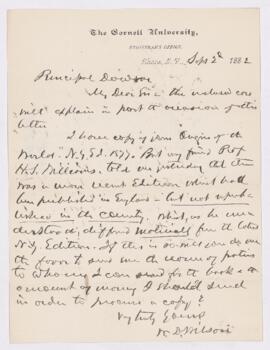 The Cornell University,
REGISTRAR'S OFFICE.
Ithaca, N. Y., Sept 2d 1882
Principal Dawson
My Dear Sir - the inclosed card
will explain in part the occasion of this
letter
I have a copy of your "Origin of the
World" N.Y. Ed. 1877. But my friend Prof
H.S. Williams, told me yesterday that there
was a more recent Edition which had
been published in England - but not repub-
lished in this country. Which, as he un-
derstood it, differed materially from the
N.Y. Edition. If this is so will you do me
the favor to send me the name of parties
to whom I can send for the book & the
amount of money I should send
in order to procure a copy?
Very truly yours
W. D. Wilson